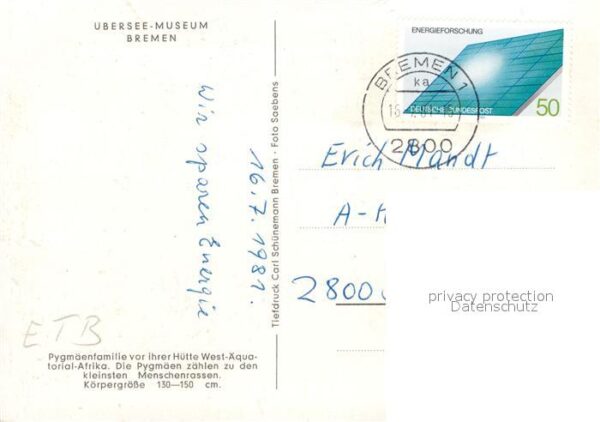 ÜBERSEE-MUSEUM
BREMEN
ENERGIEFORSCHUNG
DEUTSCHE BUNDESPOST
50
BREMEN 1
ka
2800
Wir sparen Energie
16.7.1981.
Tiefdruck Carl Schünemann Bremen - Foto Saebens
Erich Mandt
A-
2800
privacy protection
Datenschutz
ETB
Pygmäenfamilie vor ihrer Hütte West-Äqua-
torial-Afrika. Die Pygmäen zählen zu den
kleinsten Menschenrassen.
Körpergröße 130—150 cm.